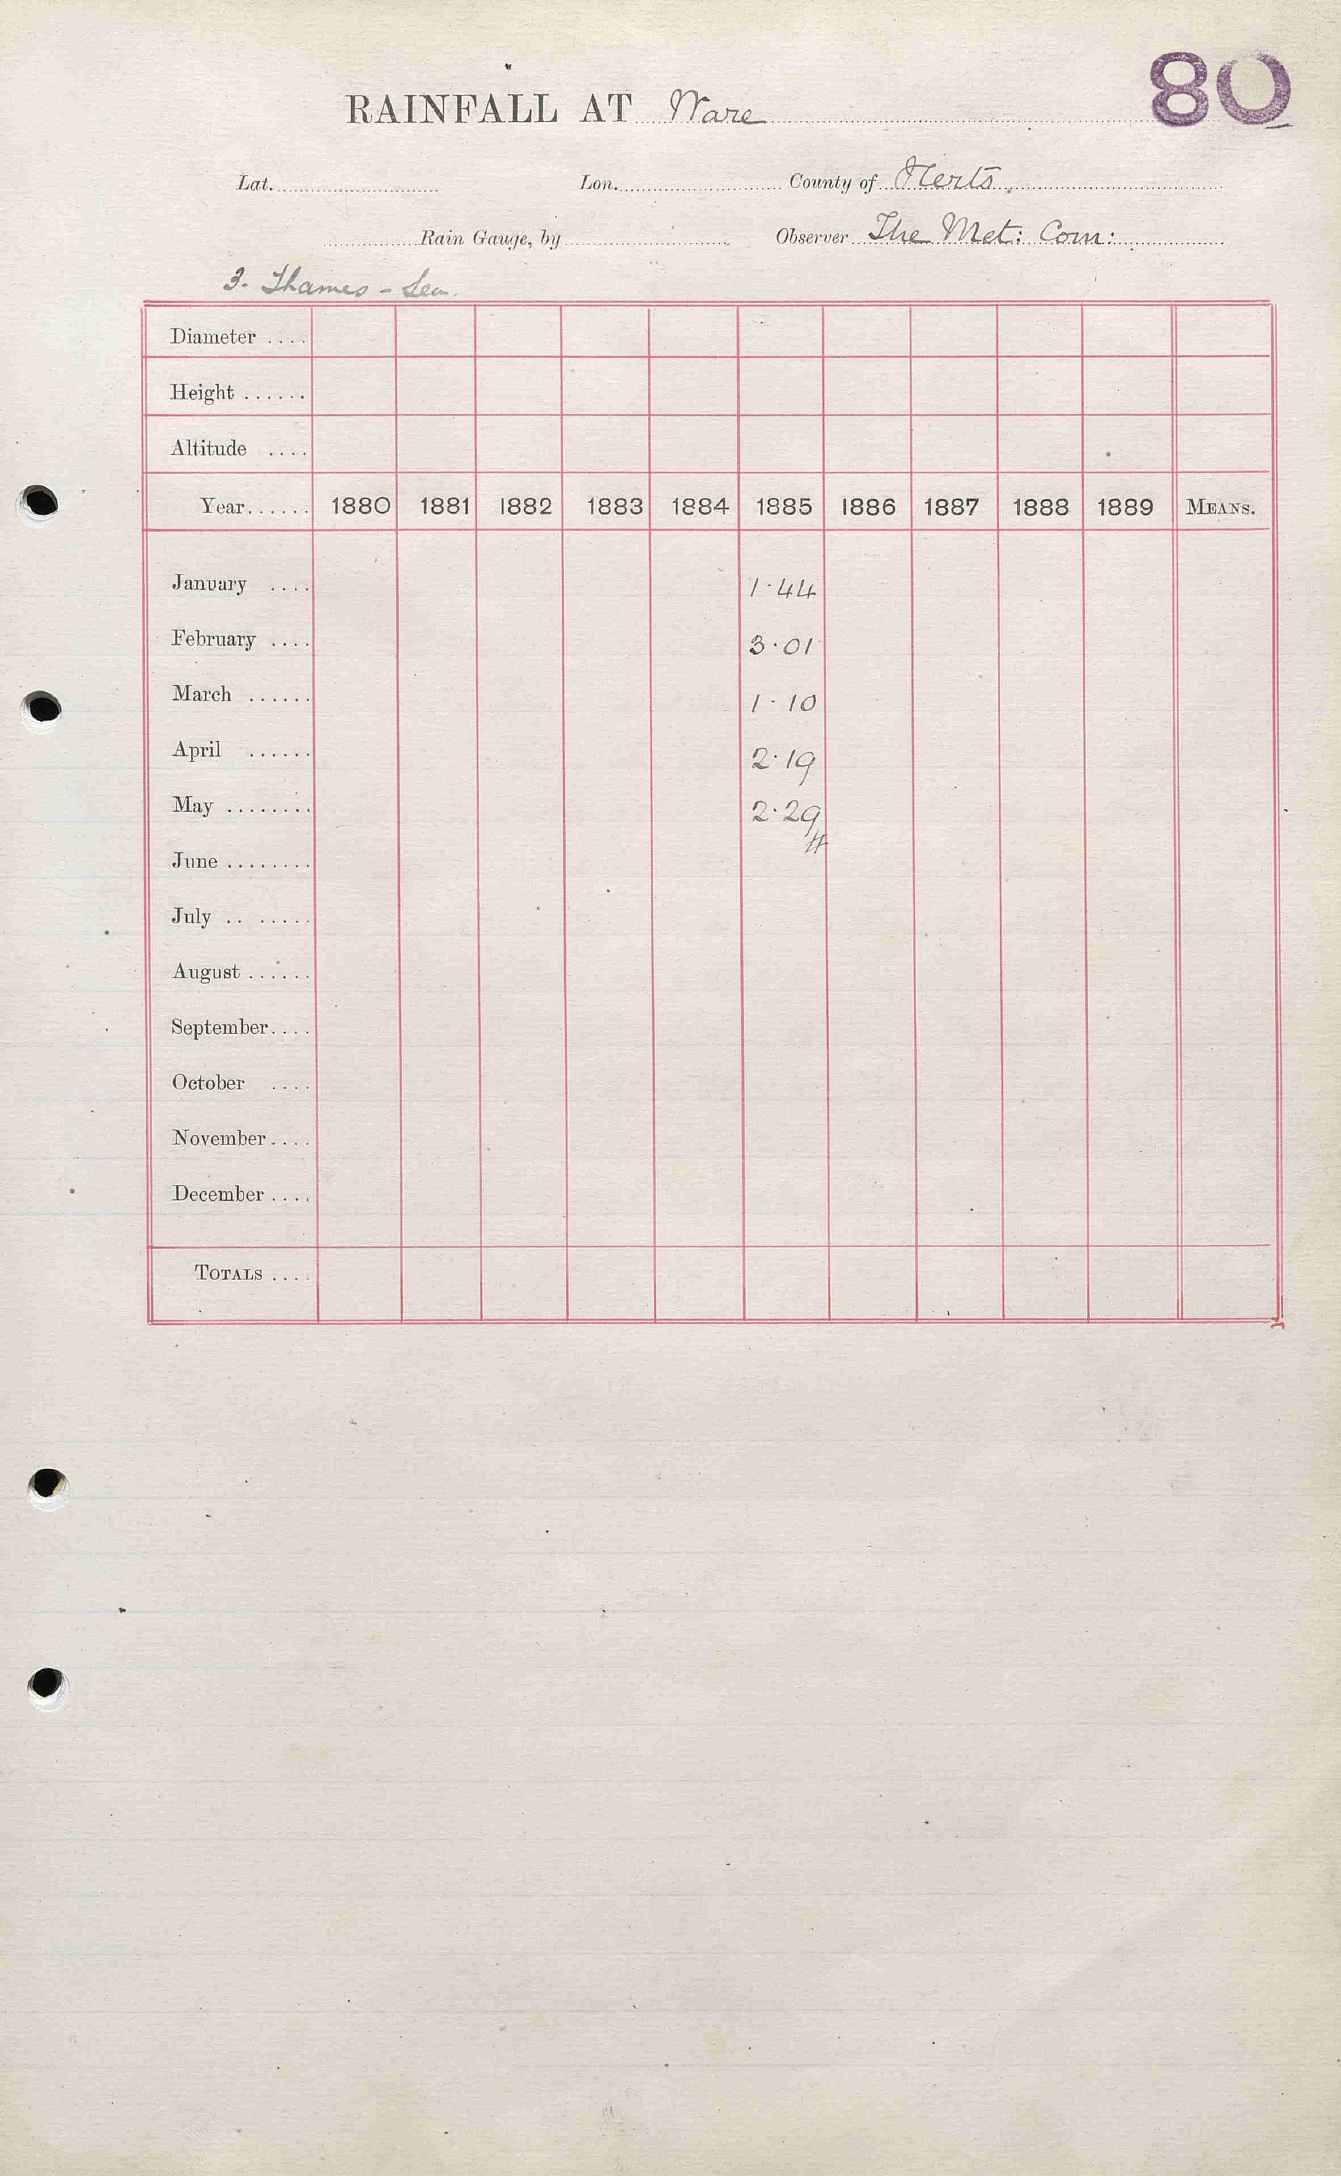 80
RAINFALL AT Ware
Lat. Lon. County of Herts.
Rain Gauge, by Observer The Met: Com:
3. Thames - Lea.
Diameter ....
Height ......
Altitude ....
Year...... 1880 1881 1882 1883 1884 1885 1886 1887 1888 1889 MEANS.
January .... 1.44
February .... 3.01
March ...... 1.10
April ...... 2.19
May ........ 2.29
June ........
July .. ......
August ......
September....
October ....
November....
December ....
TOTALS ....